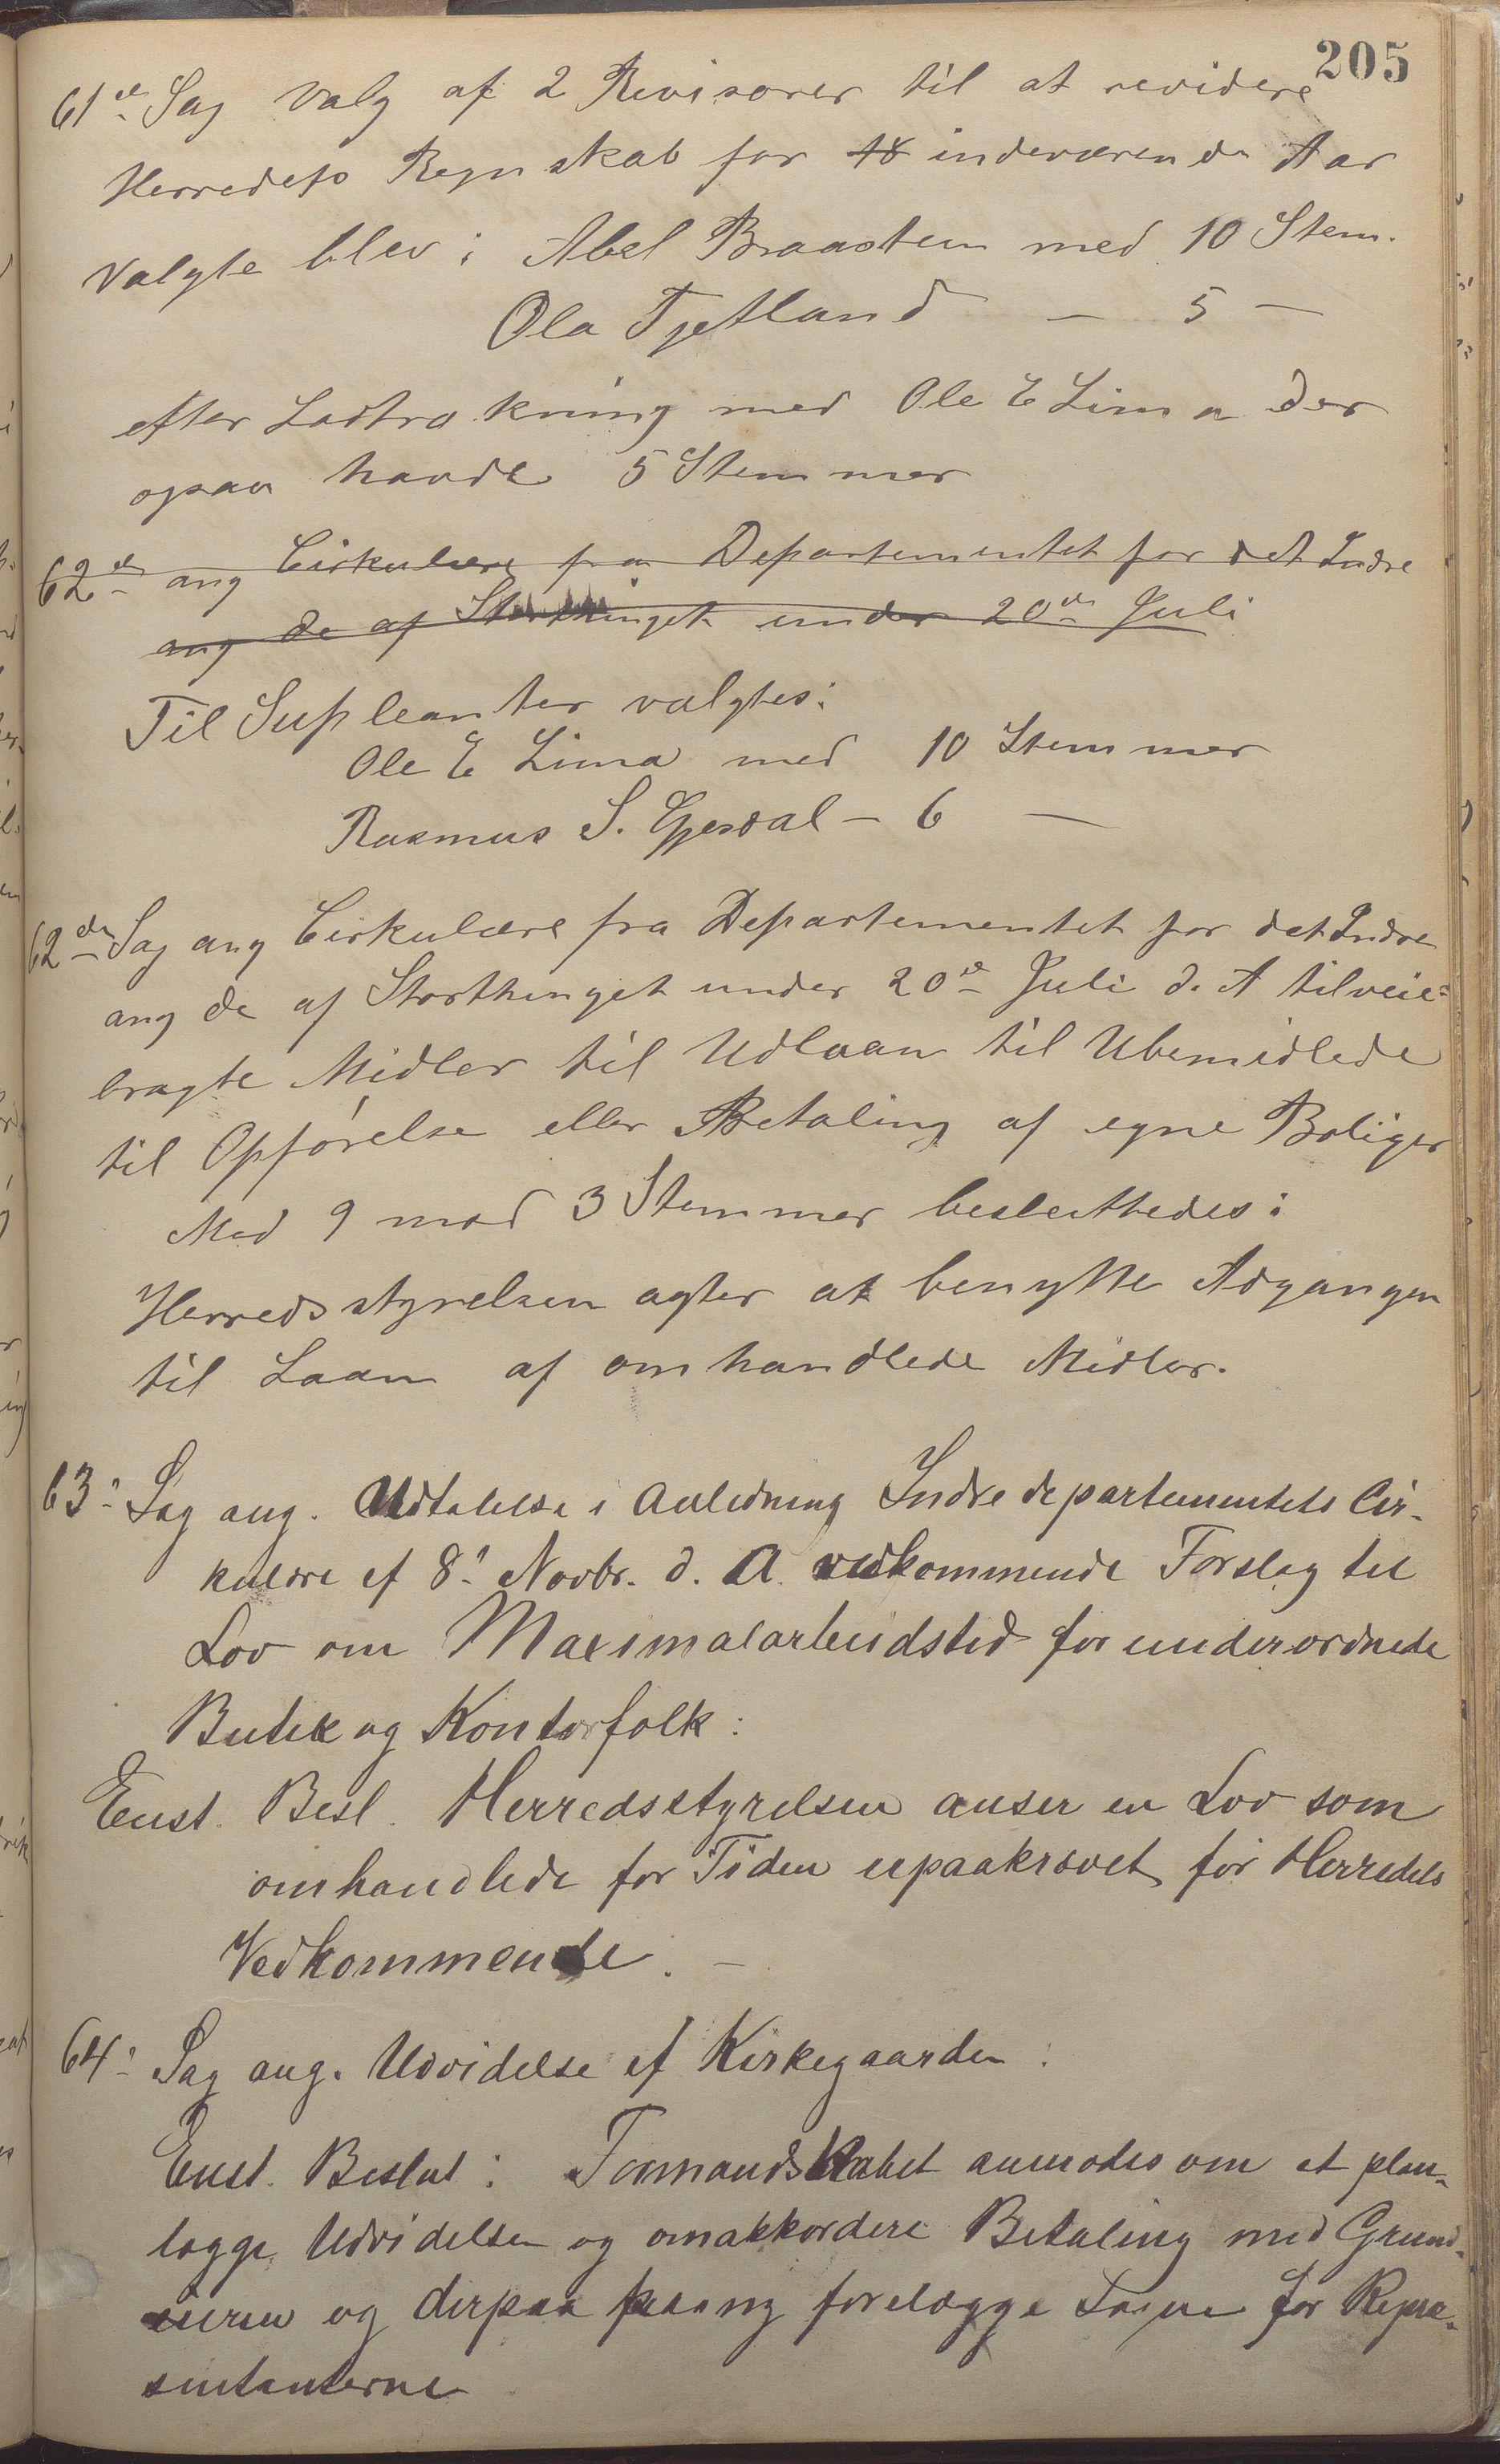 205
61de Sag Valg af 2 Revisorer til at revidere
Herredets Regnskab for 18 indeværende Aar
Valgte blev: Abel Braastein med 10 Stem.
Ola Tjetland — 5 —
efter Lodtrækning med Ole E Lima der
ogsaa havde 5 Stemmer
62de ang Cirkulære fra Departementet for det Indre
ang de af Storthinget under 20de Juli
Til Supleanter valgtes:
Ole E Lima med 10 Stemmer
Rasmus S. Gjesdal — 6 —
62de Sag ang Cirkulære fra Departementet for det Indre
ang de af Storthinget under 20de Juli d. A tilveie-
bragte Midler til Udlaan til Ubemidlede
til Opførelse eller Betaling af egne Boliger
Med 9 mod 3 Stemmer besluttedes:
Herredsstyrelsen agter at benytte Adgangen
til Laan af omhandlede Midler.
63: Sag ang. Udtalelse i Anledning Indredepartementets Cir-
kulære af 8: Novbr. d. A. vedkommende Forslag til
Lov om Maximalarbeidstid for underordnede
Butik og Kontorfolk:
Enst. Besl. Herredsstyrelsen anser en Lov som
omhandlede for Tiden upaakrævet for Herredets
Vedkommende. —
64: Sag ang. Udvidelse af Kirkegaarden:
Enst. Beslut: Formandskabet anmodes om at plan-
lægge Udvidelsen og omakkordere Betaling med Grund-
eieren og derpaa paany forelægge Sagen for Repræ-
sentanterne